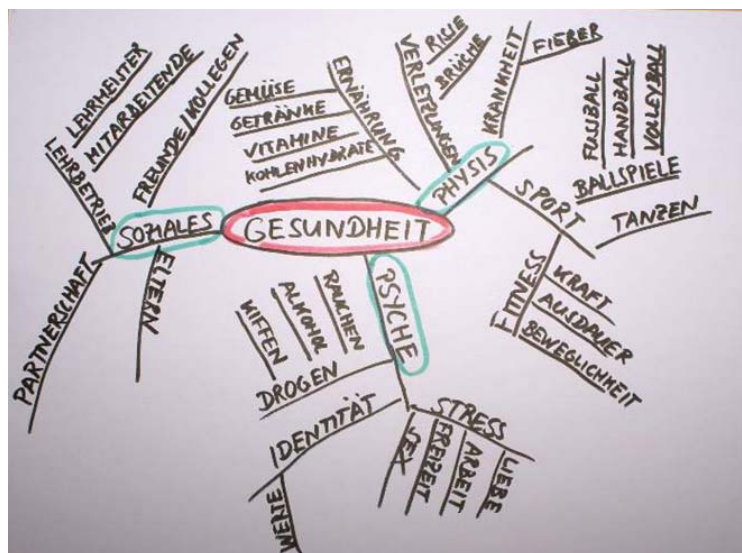 GESUNDHEIT
SOZIALES
LEHRBETRIEB
LEHRMEISTER
MITARBEITENDE
FREUNDE/KOLLEGEN
PARTNERSCHAFT
ELTERN
PHYSIS
ERNÄHRUNG
GEMÜSE
GETRÄNKE
VITAMINE
KOHLENHYDRATE
VERLETZUNGEN
RISSE
BRÜCHE
KRANKHEIT
FIEBER
SPORT
BALLSPIELE
FUSSBALL
HANDBALL
VOLLEYBALL
TANZEN
FITNESS
KRAFT
AUSDAUER
BEWEGLICHKEIT
PSYCHE
DROGEN
KIFFEN
ALKOHOL
RAUCHEN
IDENTITÄT
WERTE
STRESS
SEX
FREIZEIT
ARBEIT
LIEBE